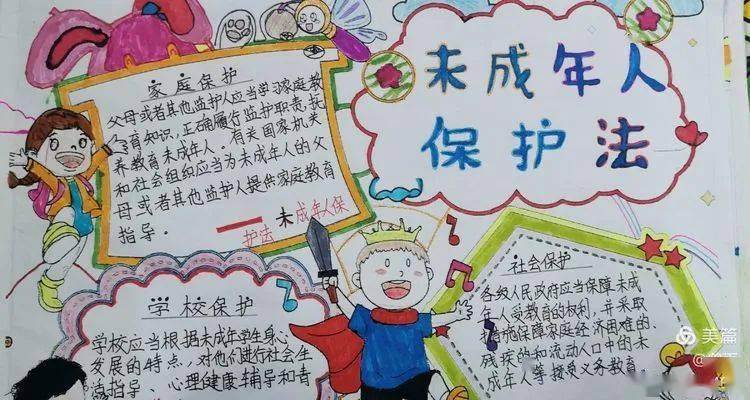 未成年人
保护法
家庭保护
父母或者其他监护人应当学习家庭教
育知识,正确履行监护职责,抚
养教育未成年人。有关国家机关
和社会组织应当为未成年人的父
母或者其他监护人提供家庭教育
指导。
未成年人保
护法
学校保护
学校应当根据未成年学生身心
发展的特点,对他们进行社会生
活指导、心理健康辅导和青
社会保护
各级人民政府应当保障未成
年人受教育的权利,并采取
措施保障家庭经济困难的、
残疾的和流动人口中的未
成年人等接受义务教育。
美篇